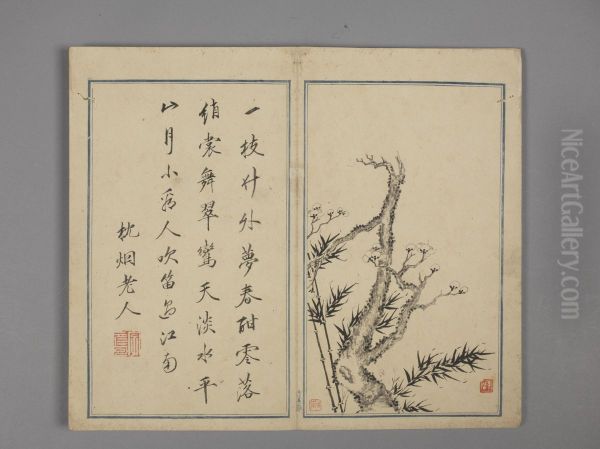 一枝竹外夢春酣零落
綃裳舞翠鸞天淡水平
山月小人吹笛過江南
枕烟老人
NiceArtGallery.com